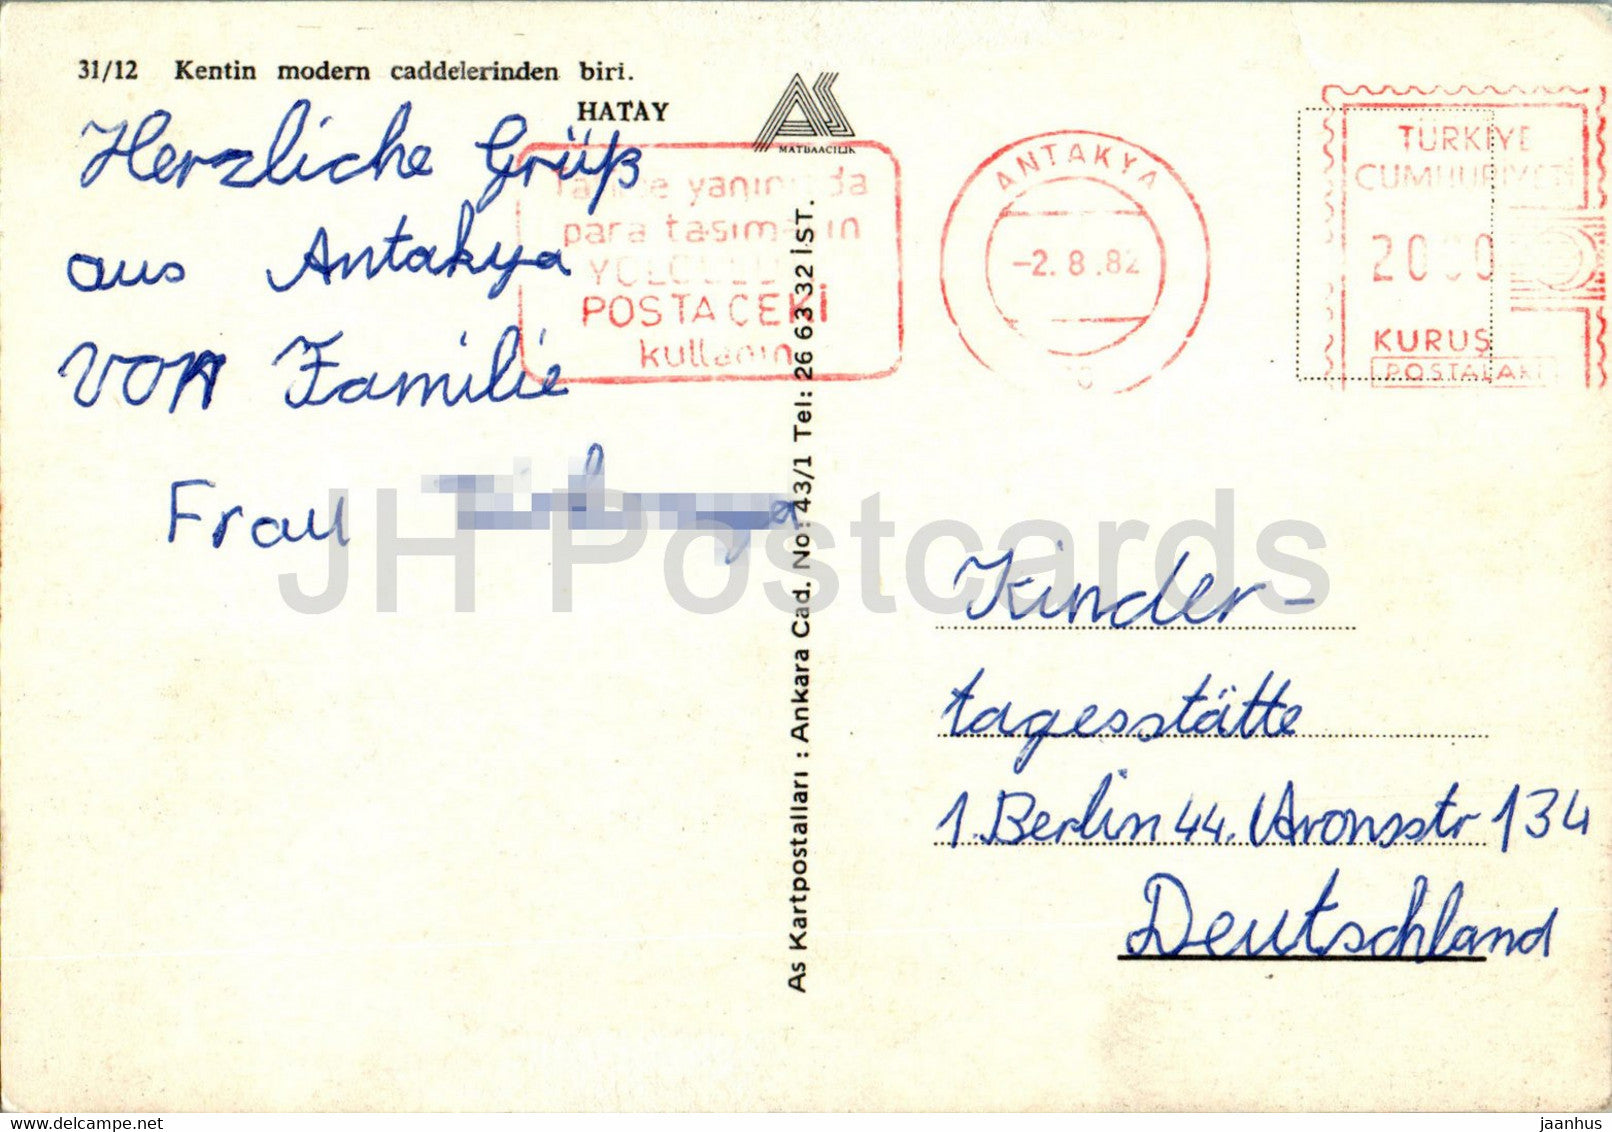 31/12 Kentin modern caddelerinden biri.
HATAY
MATBAACILIK
Herzliche Grüß
aus Antakya
von Familie
Frau
yanınızda
para taşımayın
POSTA ÇEKİ
kullanın
ANTAKYA
-2.8.82
TÜRKİYE
CUMHURİYETİ
2000
KURUŞ
POSTALARI
As Kartpostalları : Ankara Cad. No: 43/1 Tel: 26 63 32 İST.
JH Postcards
Kinder-
tagesstätte
1. Berlin 44. Aronsstr 134
Deutschland
delcampe.net
jaanhus